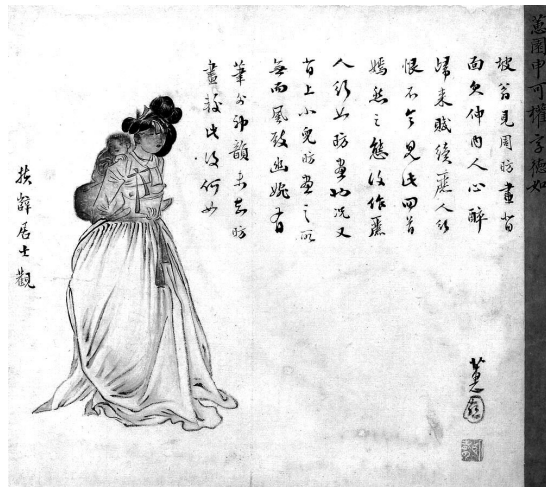 蕙園申可權字德如
坡翁見周昉畫背
面欠伸內人心醉
歸來賦續麗人行
恨不令見此回首
嫣然之態復作麗
人行如昉畫也況又
背上小兒昉畫之所
無而風致幽婉有
筆外神韻未知昉
畫較此復何如
扶辭居士觀
蕙園